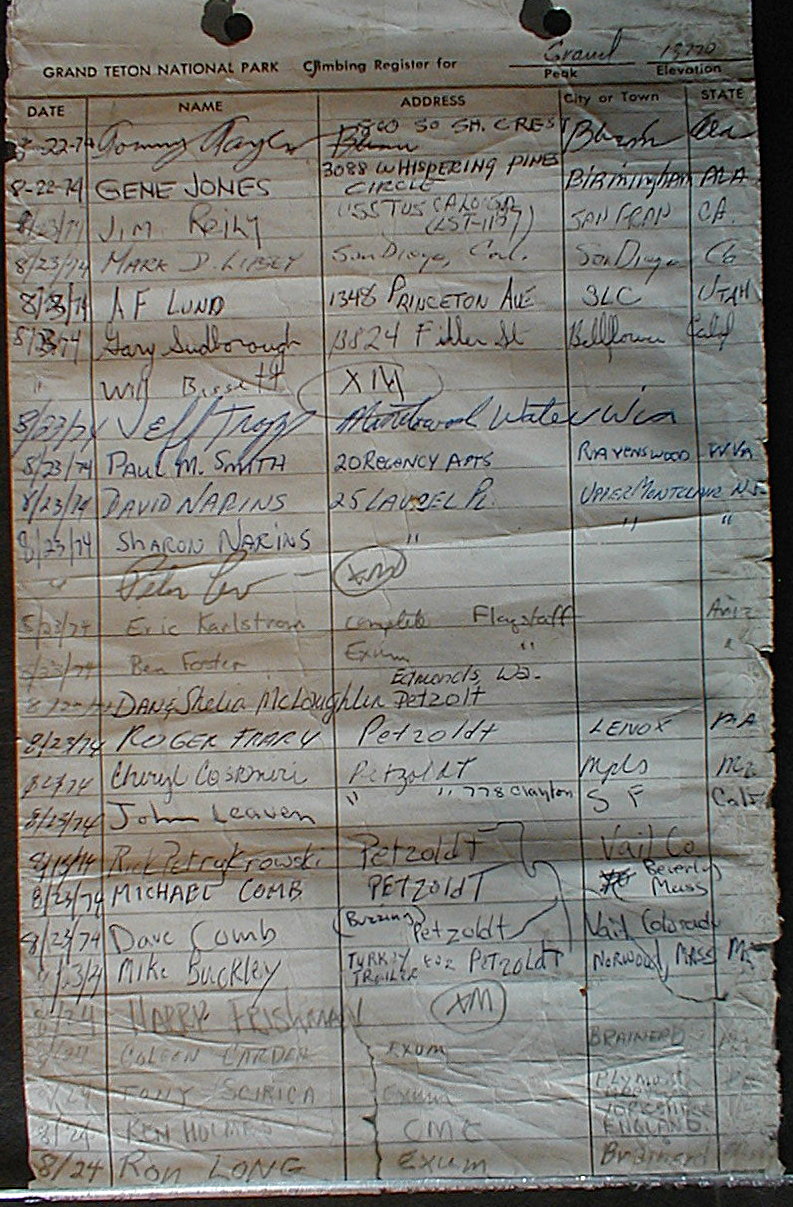 Grand 13770
GRAND TETON NATIONAL PARK Climbing Register for Peak Elevation
DATE NAME ADDRESS City or Town STATE
8-22-74 Tommy SO SH. CREST
8-22-74 GENE JONES 3088 WHISPERING PINES CIRCLE BIRMINGHAM ALA
8/23/74 JIM REILY USS TUSCALOOSA (LST-1187) SAN FRAN CA.
8/23/74 MARK D. LIBBEY San Diego, Cal. San Diego Ca
8/23/74 A F LUND 1348 PRINCETON AVE SLC UTAH
8/23/74 Gary Sudborough 13824 Filler St Bellflower Calif
" Will Bassett XM
8/23/74 Jeff Wis
8/23/74 PAUL M. SMITH 20 REGENCY APTS RAVENSWOOD W.VA.
8/23/74 DAVID NARINS 25 LAUREL PL. UPPER MONTCLAIR N.J.
8/23/74 SHARON NARINS " " "
" XM
8/23/74 Eric Karlstrom complete Flagstaff Ariz
8/23/74 Ben Foster Exum " "
Edmonds, Wa.
DAN & Shelia McLaughlin Petzolt
8/23/74 ROGER FRARY Petzoldt LENOX MA
Cheryl Petzoldt Mpls
8/23/74 John Leaven " " 778 Clayton S F Calif
Rick Petrykowski Petzoldt Vail Co
8/23/74 MICHAEL COMB PETZOLDT Beverly Mass
8/23/74 Dave Comb (Buzzing) Petzoldt Vail Colorado
Mike Buckley TURKEY TROTTER FOR PETZOLDT NORWOOD, MASS
8/24 HARRY FRISHMAN XM
COLEEN CARDEN EXUM BRAINERD
8/24 TONY SCIRICA EXUM
8/24 KEN HOLMES CMC YORKSHIRE ENGLAND.
8/24 RON LONG EXUM Brainerd